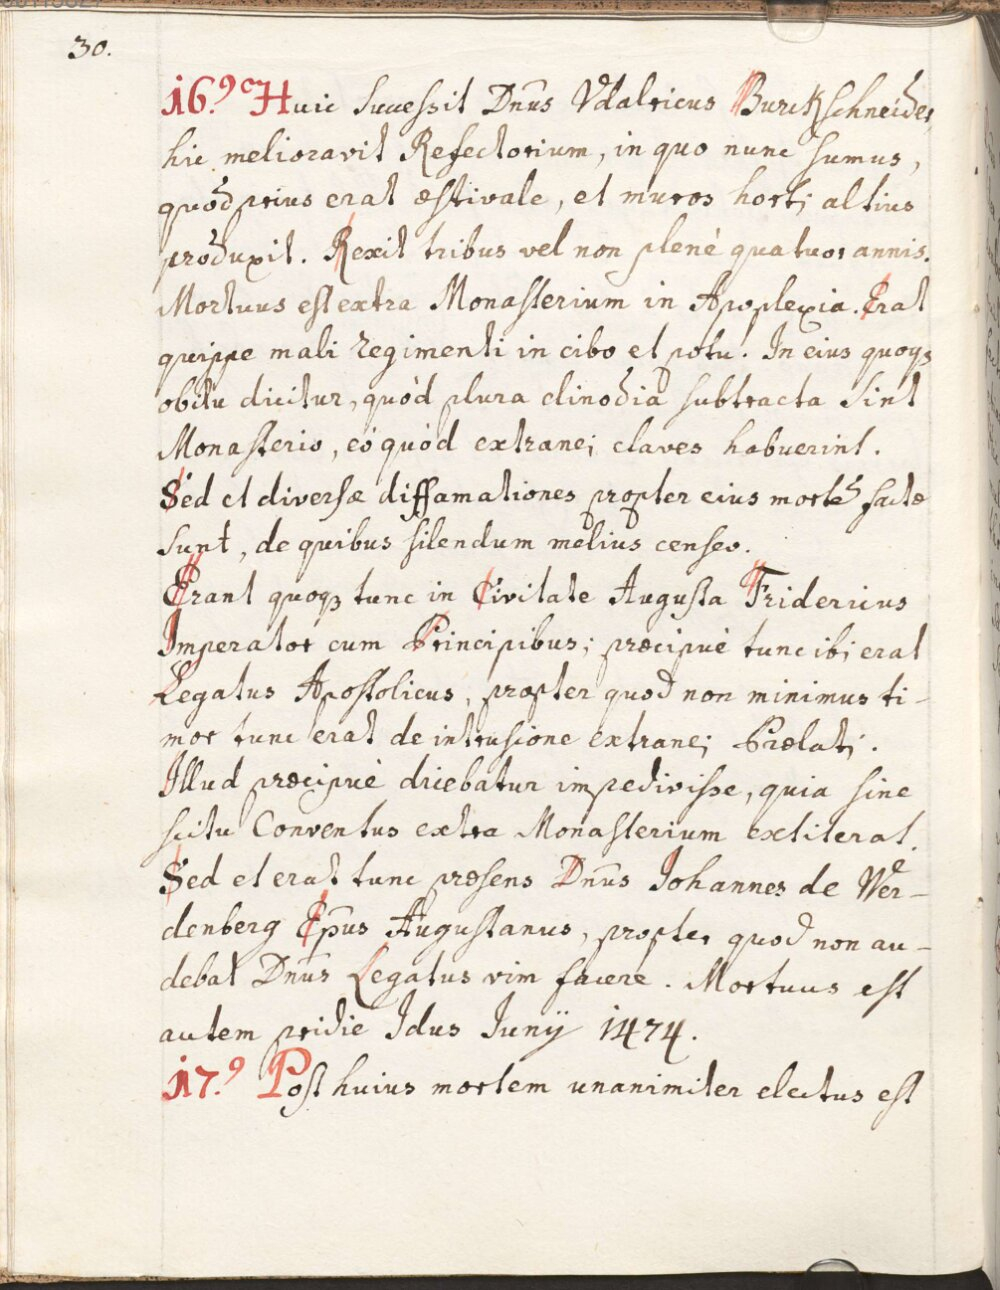 30.
16.⁹ Huic Successit Dn̄us Vdalricus Burckschneider,
hic melioravit Refectorium, in quo nunc sumus,
quod prius erat æstivale, et muros horti altius
produxit. Rexit tribus vel non plenè quatuor annis.
Mortuus est extra Monasterium in Apoplexia. Erat
quippe mali regimenti in cibo et potu. In eius quoqꝫ
obitu dicitur, quòd plura clinodia subtracta sint
Monasterio, eò quòd extranei claves habuerint.
Sed et diversæ diffamationes propter eius mortē factæ
sunt, de quibus silendum melius censeo.
Erant quoqꝫ tunc in Civitate Augusta Fridericus
Imperator cum Principibus; præcipuè tunc ibi erat
Legatus Apostolicus, propter quod non minimus ti-
mor tunc erat de intrusione extranei Prælati.
Illud præcipuè dicebatur impedivisse, quia sine
scitu Conventus extra Monasterium extiterat.
Sed et erat tunc præsens Dn̄us Johannes de Wer-
denberg Ep̄us Augustanus, propter quod non au-
debat Dn̄us Legatus vim facere. Mortuus est
autem pridie Idus Junÿ 1474.
17.⁹ Post huius mortem unanimiter electus est